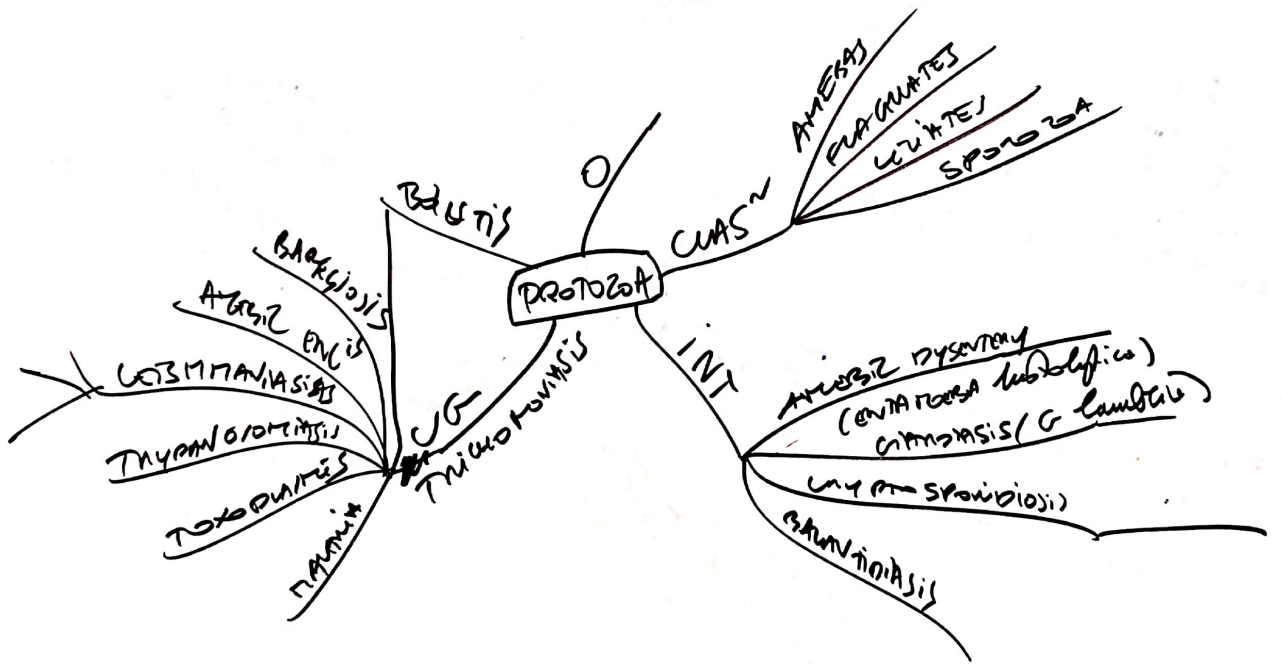 PROTOZOA
O
CLAS~
AMEBAS
FLAGLLATES
CILIATES
SPOROZOA
INT
AMEBIC DYSENTERY
(ENTAMOEBA histolytica)
GIARDIASIS (G lamblia)
CRYPTOSPORIDIOSIS
BALANTIDIASIS
UG
TRICHOMONIASIS
BABESIOSIS
AMEBIC ENC is
LEISHMANIASIS
TRYPANOSOMIASIS
TOXOPLASMOSIS
MALARIA